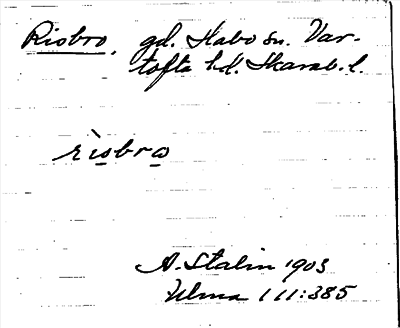 Risbro, gd. Habo sn. Var-
tofta hd. Skarab. l.
rìsbro
A. Stalin 1903
Ulma 111:385